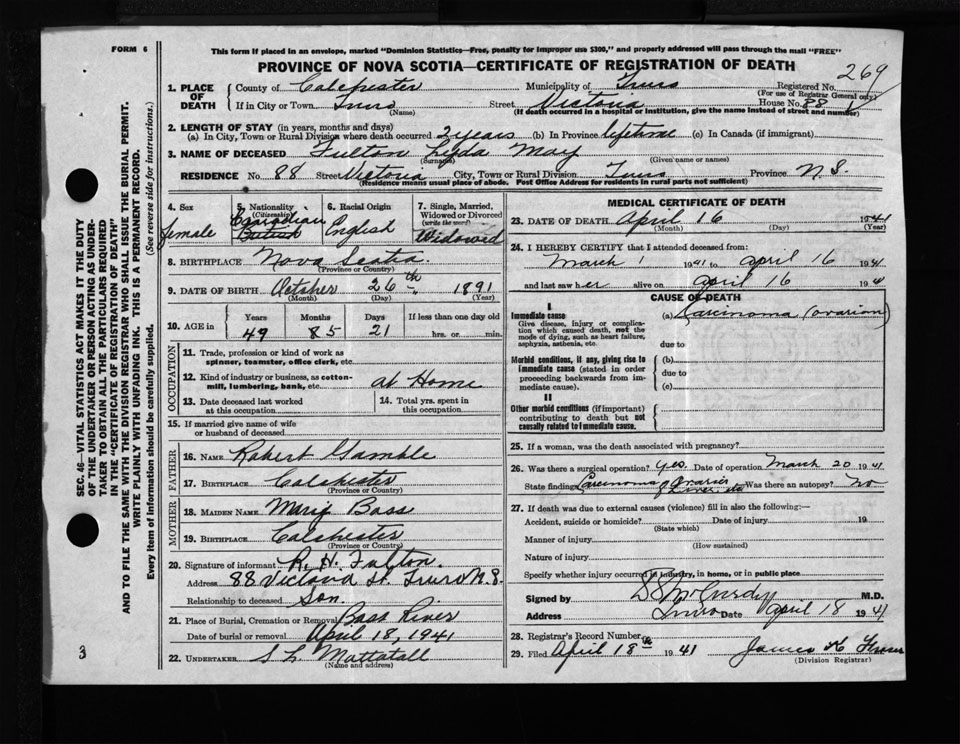 FORM 6
This form if placed in an envelope, marked "Dominion Statistics—Free, penalty for improper use $300," and properly addressed will pass through the mail "FREE"
PROVINCE OF NOVA SCOTIA—CERTIFICATE OF REGISTRATION OF DEATH
269
1. PLACE OF DEATH
County of Colchester Municipality of Truro Registered No.
(For use of Registrar General only)
If in City or Town Truro Street Victoria House No. 88
(Name) (If death occurred in a hospital or institution, give the name instead of street and number)
2. LENGTH OF STAY (in years, months and days)
(a) In City, Town or Rural Division where death occurred 2 years (b) In Province lifetime (c) In Canada (if immigrant)
3. NAME OF DECEASED Fulton Lyda May
(Surname) (Given name or names)
RESIDENCE No. 88 Street Victoria City, Town or Rural Division Truro Province N.S.
(Residence means usual place of abode. Post Office Address for residents in rural parts not sufficient)
4. Sex female
5. Nationality (Citizenship) Canadian British
6. Racial Origin English
7. Single, Married, Widowed or Divorced (write the word) Widowed
8. BIRTHPLACE Nova Scotia
(Province or Country)
9. DATE OF BIRTH October 26th 1891
(Month) (Day) (Year)
10. AGE in Years Months Days If less than one day old
49 85 21 hrs. or min.
OCCUPATION
11. Trade, profession or kind of work as spinner, teamster, office clerk, etc.
12. Kind of industry or business, as cotton-mill, lumbering, bank, etc. at Home
13. Date deceased last worked at this occupation
14. Total yrs. spent in this occupation
15. If married give name of wife or husband of deceased
FATHER
16. NAME Robert Gamble
17. BIRTHPLACE Colchester
(Province or Country)
MOTHER
18. MAIDEN NAME Marie Bass
19. BIRTHPLACE Colchester
(Province or Country)
20. Signature of informant R. H. Fulton
Address 88 Victoria St. Truro N.S.
Relationship to deceased Son.
21. Place of Burial, Cremation or Removal Bass River
Date of burial or removal April 18, 1941
22. UNDERTAKER S L Mattatall
(Name and address)
MEDICAL CERTIFICATE OF DEATH
23. DATE OF DEATH April 16 1941
(Month) (Day) (Year)
24. I HEREBY CERTIFY that I attended deceased from:
March 1 1941 to April 16 1941
and last saw her alive on April 16 194
CAUSE OF DEATH
I
Immediate cause (a) Carcinoma (ovarian)
Give disease, injury or complication which caused death, not the mode of dying, such as heart failure, asphyxia, asthenia, etc.
due to
Morbid conditions, if any, giving rise to immediate cause (stated in order proceeding backwards from immediate cause).
(b)
due to
(c)
II
Other morbid conditions (if important) contributing to death but not causally related to immediate cause.
25. If a woman, was the death associated with pregnancy?
26. Was there a surgical operation? yes. Date of operation March 20 1941
State findings Carcinoma of Ovaries Liver, etc Was there an autopsy? No
27. If death was due to external causes (violence) fill in also the following:—
Accident, suicide or homicide? Date of injury 19
(State which)
Manner of injury
(How sustained)
Nature of injury
Specify whether injury occurred in industry, in home, or in public place
Signed by D S McCurdy M.D.
Address Truro Date April 18 1941
28. Registrar's Record Number
29. Filed April 18th 1941 James K Fraser
(Division Registrar)
SEC. 46—VITAL STATISTICS ACT MAKES IT THE DUTY
OF THE UNDERTAKER OR PERSON ACTING AS UNDER-
TAKER TO OBTAIN ALL THE PARTICULARS REQUIRED
IN THE "CERTIFICATE OF REGISTRATION OF DEATH"
AND TO FILE THE SAME WITH THE DIVISION REGISTRAR WHO SHALL ISSUE THE BURIAL PERMIT.
WRITE PLAINLY WITH UNFADING INK. THIS IS A PERMANENT RECORD.
Every item of information should be carefully supplied. (See reverse side for instructions.)
3